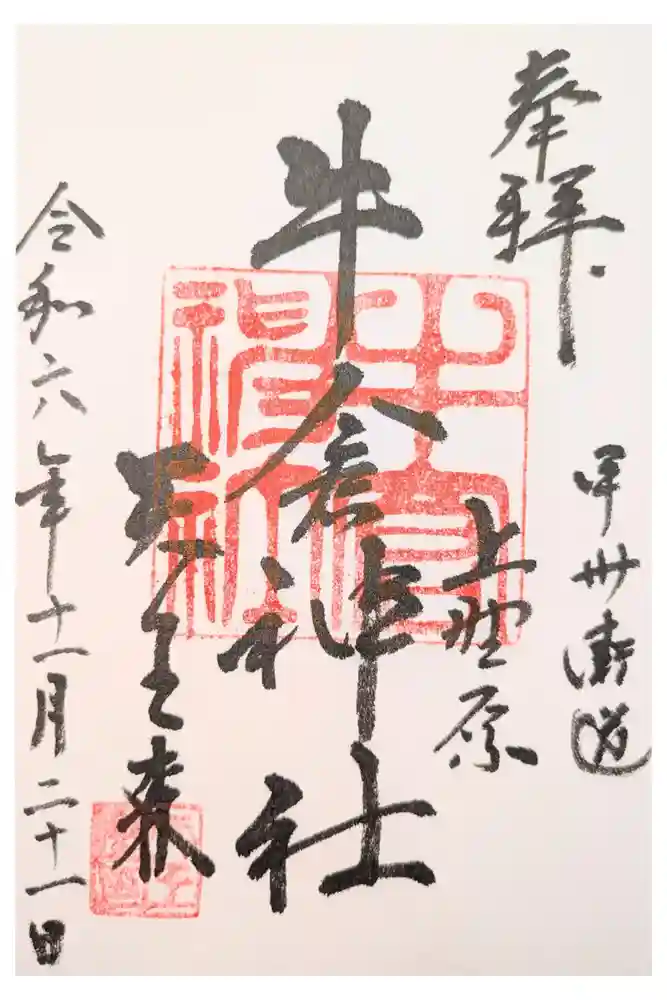 奉拝
甲州街道
上野原
牛倉神社
令和六年十一月二十一日